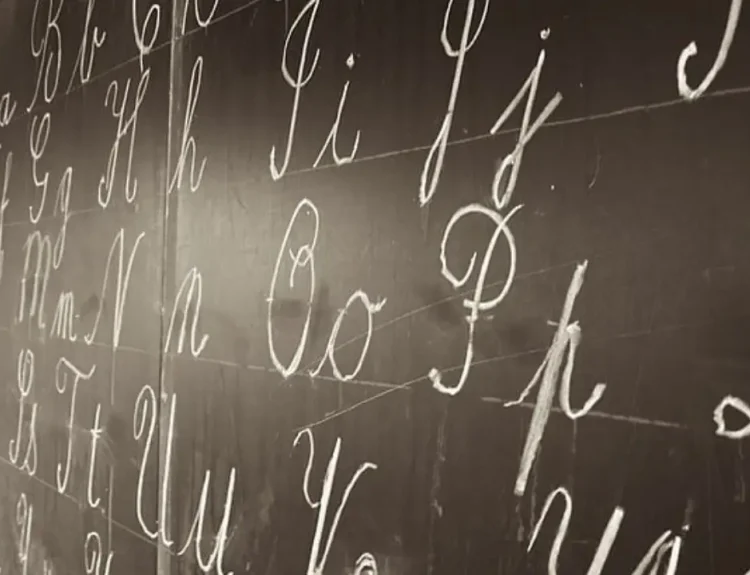 Bb
Hh Ii Jj
Gg
Mm Nn Oo Pp
Ss Tt Uu V